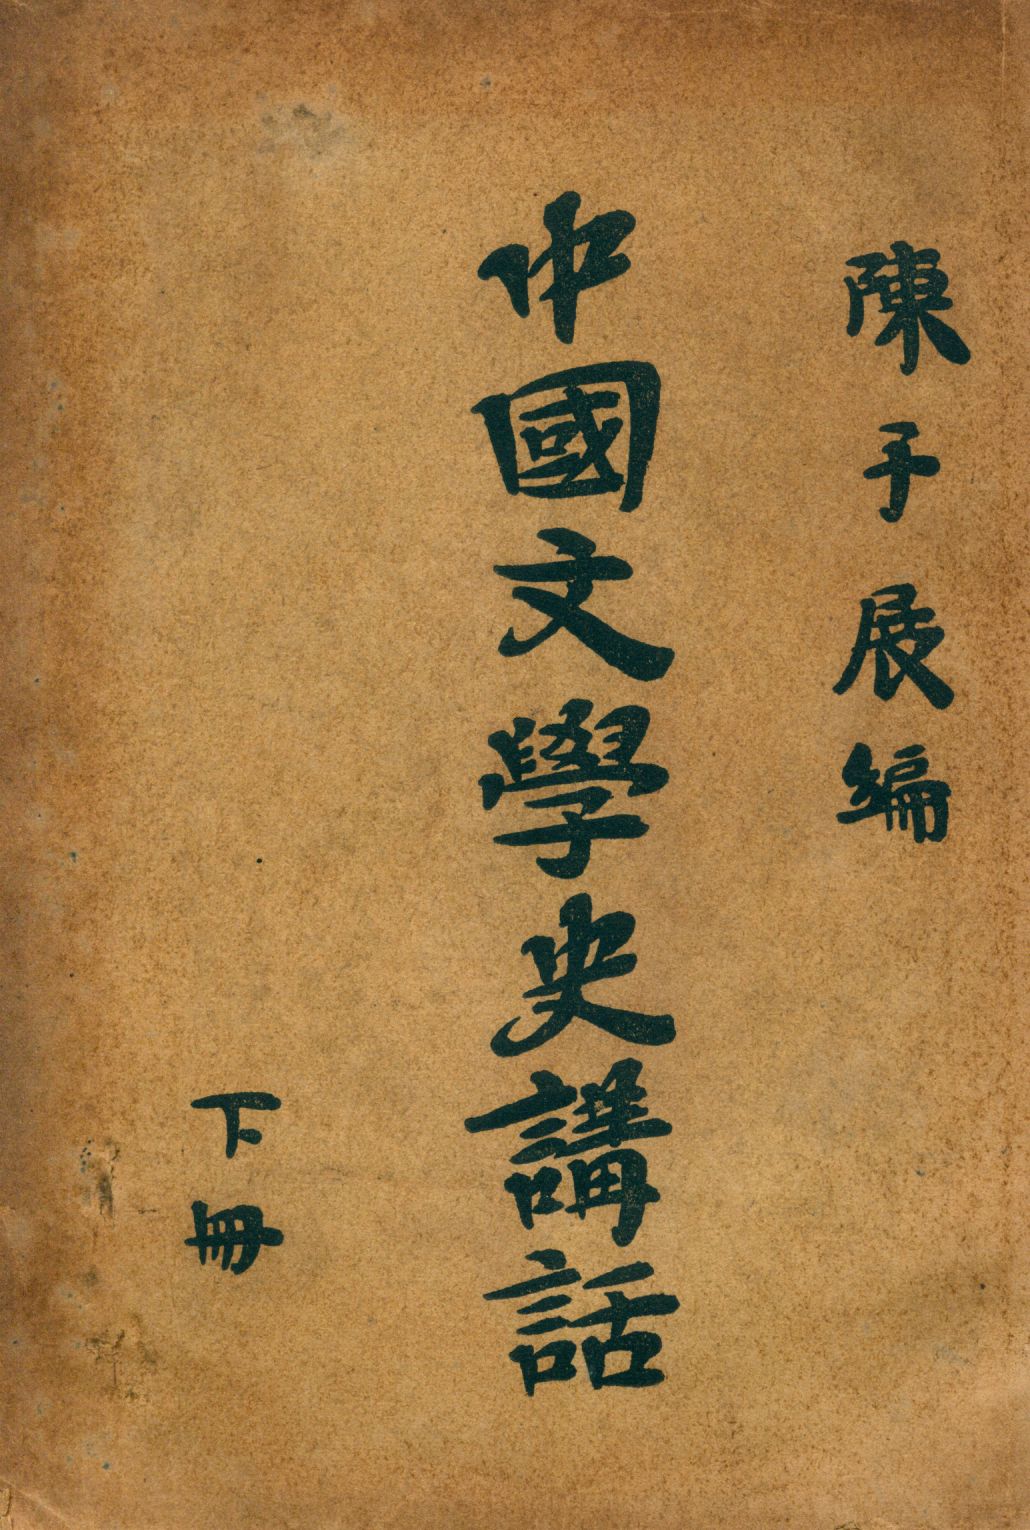 陳子展編
中國文學史講話
下冊